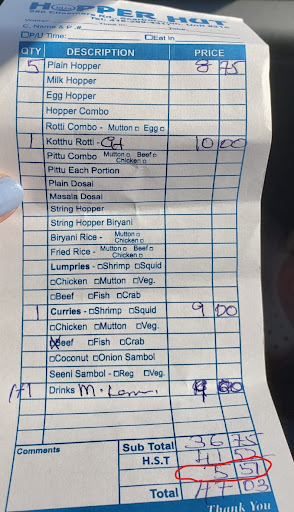 HOPPER HUT
□P/U Time: □Eat in
QTY DESCRIPTION PRICE
5 Plain Hopper 8 75
Milk Hopper
Egg Hopper
Hopper Combo
Rotti Combo - Mutton □ Egg □
1 Kotthu Rotti - CH 10 00
Pittu Combo Mutton □ Beef □ Chicken □
Pittu Each Portion
Plain Dosai
Masala Dosai
String Hopper
String Hopper Biryani
Biryani Rice - Mutton □ Chicken □
Fried Rice - Mutton □ Beef □ Chicken □
Lumpries - □Shrimp □Squid
□Chicken □Mutton □Veg.
□Beef □Fish □Crab
1 Curries - □Shrimp □Squid 9 00
□Chicken □Mutton □Veg.
☒Beef □Fish □Crab
□Coconut □Onion Sambol
Seeni Sambol - □Reg □Veg.
Drinks
Comments
Sub Total 36 75
H.S.T 41 52
5 51
Total 47 03
Thank You